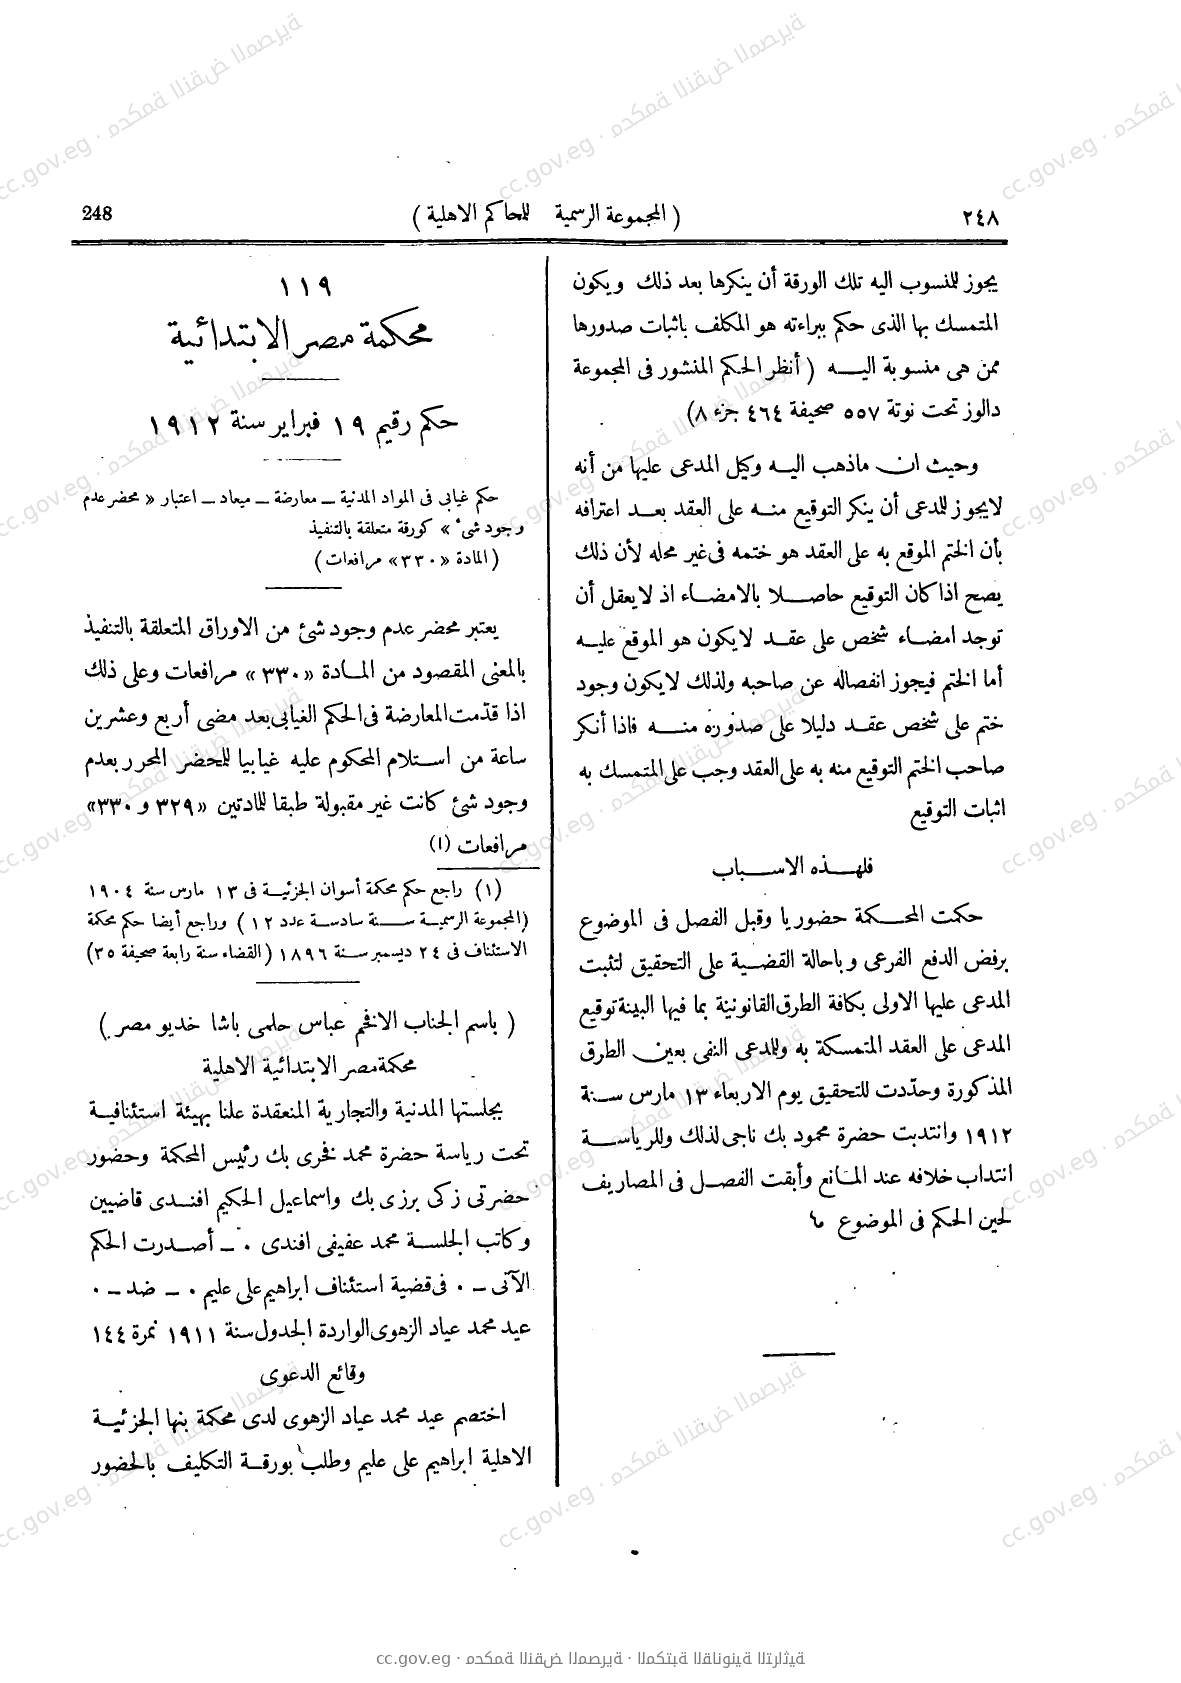 ٢٤٨
( المجموعة الرسمية للمحاكم الاهلية )
248
يجوز للمنسوب اليه تلك الورقة أن ينكرها بعد ذلك ويكون
المتمسك بها الذى حكم ببراءته هو المكلف باثبات صدورها
ممن هى منسوبة اليه ( أنظر الحكم المنشور فى المجموعة
دالوز تحت نوتة ٥٥٧ صحيفة ٤٦٤ جزء ٨)
وحيث ان ماذهب اليه وكيل المدعى عليها من أنه
لايجوز للمدعى أن ينكر التوقيع منه على العقد بعد اعترافه
بأن الختم الموقع به على العقد هو ختمه فى غير محله لأن ذلك
يصح اذا كان التوقيع حاصلا بالامضاء اذ لايعقل أن
توجد امضاء شخص على عقد لايكون هو الموقع عليه
أما الختم فيجوز انفصاله عن صاحبه ولذلك لايكون وجود
ختم على شخص عقد دليلا على صدوره منه فاذا أنكر
صاحب الختم التوقيع منه به على العقد وجب على المتمسك به
اثبات التوقيع
فلهذه الاسباب
حكمت المحكمة حضوريا وقبل الفصل فى الموضوع
برفض الدفع الفرعى وباحالة القضية على التحقيق لتثبت
المدعى عليها الاولى بكافة الطرق القانونية بما فيها البينة توقيع
المدعى على العقد المتمسكة به وللمدعى النفى بعين الطرق
المذكورة وحدّدت للتحقيق يوم الاربعاء ١٣ مارس سنة
١٩١٢ وانتدبت حضرة محمود بك ناجى لذلك وللرياسة
انتداب خلافه عند المانع وأبقت الفصل فى المصاريف
لحين الحكم فى الموضوع
١١٩
محكمة مصر الابتدائية
حكم رقيم ١٩ فبراير سنة ١٩١٢
حكم غيابى فى المواد المدنية ـ معارضة ـ ميعاد ـ اعتبار « محضر عدم
وجود شئ » كورقة متعلقة بالتنفيذ
(المادة «٣٣٠» مرافعات)
يعتبر محضر عدم وجود شئ من الاوراق المتعلقة بالتنفيذ
بالمعنى المقصود من المادة «٣٣٠» مرافعات وعلى ذلك
اذا قدّمت المعارضة فى الحكم الغيابى بعد مضى أربع وعشرين
ساعة من استلام المحكوم عليه غيابيا للمحضر المحرر بعدم
وجود شئ كانت غير مقبولة طبقا للمادتين «٣٢٩ و ٣٣٠»
مرافعات (١)
(١) راجع حكم محكمة أسوان الجزئية فى ١٣ مارس سنة ١٩٠٤
(المجموعة الرسمية سنة سادسة عدد ١٢ ) وراجع أيضا حكم محكمة
الاستئناف فى ٢٤ ديسمبر سنة ١٨٩٦ (القضاء سنة رابعة صحيفة ٣٥)
( باسم الجناب الافخم عباس حلمى باشا خديو مصر )
محكمة مصر الابتدائية الاهلية
بجلستها المدنية والتجارية المنعقدة علنا بهيئة استئنافية
تحت رياسة حضرة محمد فخرى بك رئيس المحكمة وحضور
حضرتى زكى برزى بك واسماعيل الحكيم افندى قاضيين
وكاتب الجلسة محمد عفيفى افندى ٠ ـ أصدرت الحكم
الآتى ـ ٠ فى قضية استئناف ابراهيم على عليم ٠ ـ ضد ـ ٠
عيد محمد عياد الزهوى الواردة الجدول سنة ١٩١١ نمرة ١٤٤
وقائع الدعوى
اختصم عيد محمد عياد الزهوى لدى محكمة بنها الجزئية
الاهلية ابراهيم على عليم وطلب بورقة التكليف بالحضور
cc.gov.eg · محكمة النقض المصرية · المكتبة القانونية التراثية